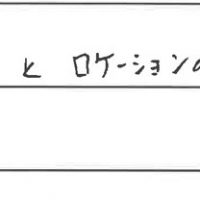 と ロケーションの